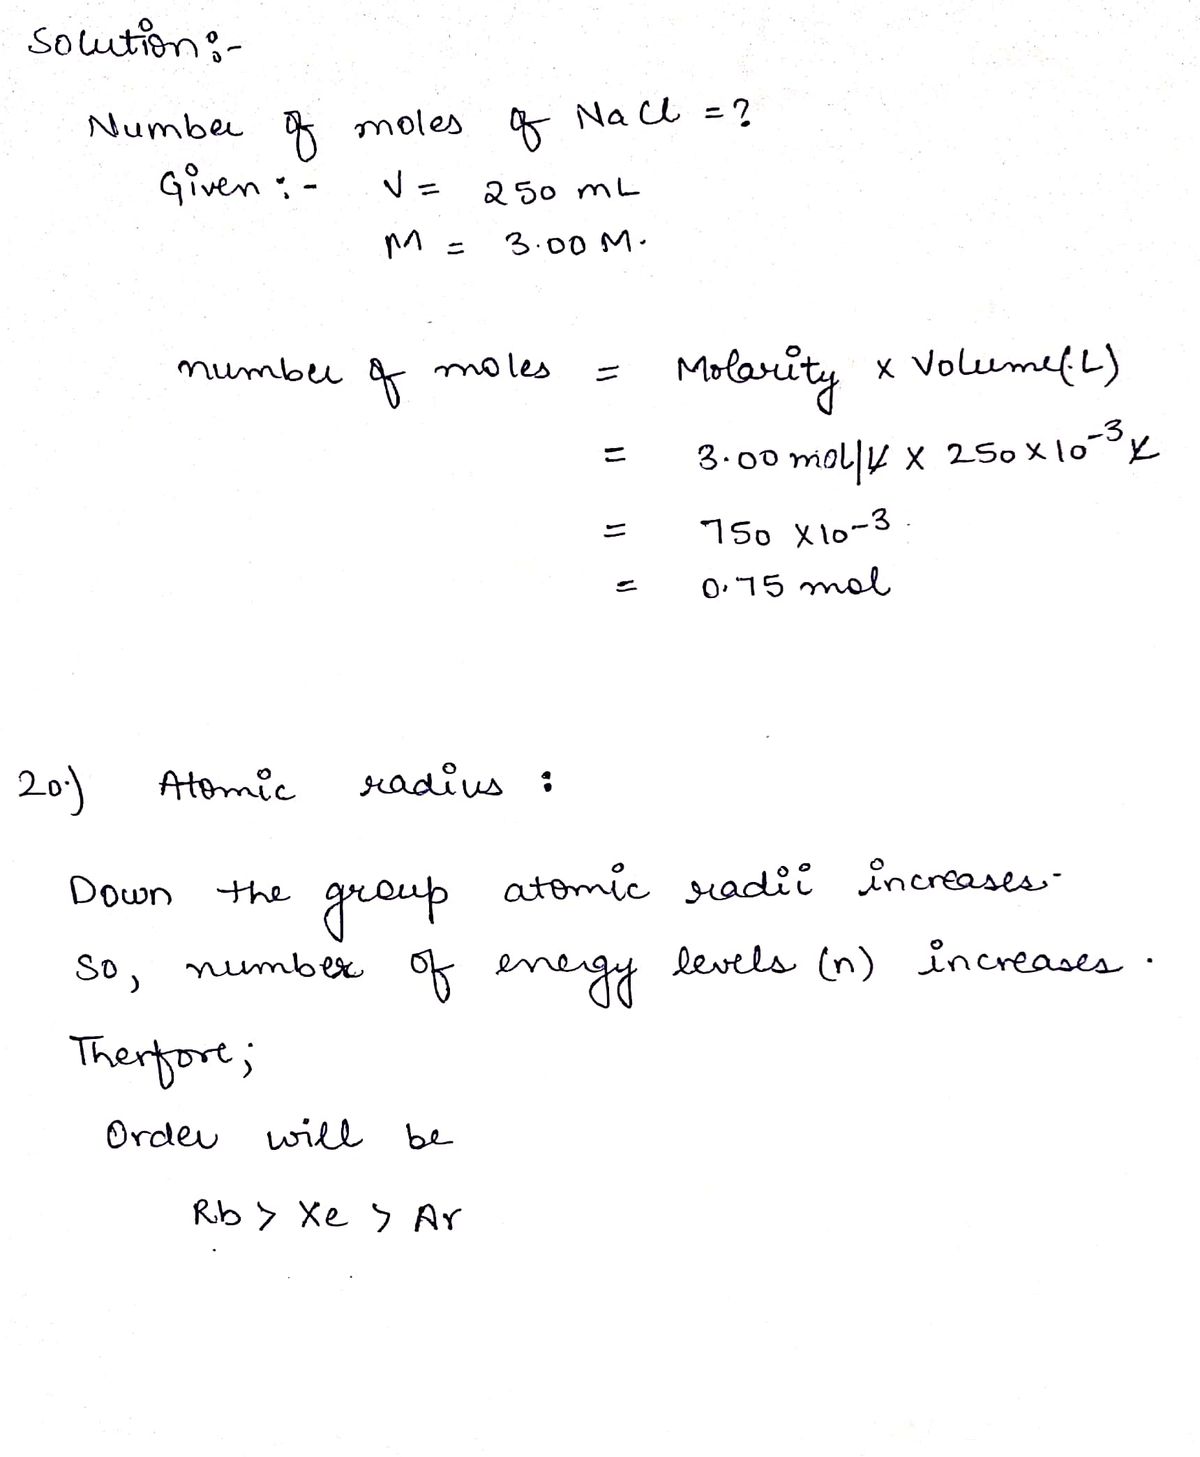 Solution:-
Number of moles of NaCl = ?
Given :- V = 250 mL
M = 3.00 M.
number of moles = Molarity x Volume(L)
= 3.00 mol/L x 250 x 10-3 L
= 750 x 10-3
= 0.75 mol
20.) Atomic radius :
Down the group atomic radii increases-
So, number of energy levels (n) increases.
Therfore;
Order will be
Rb > Xe > Ar